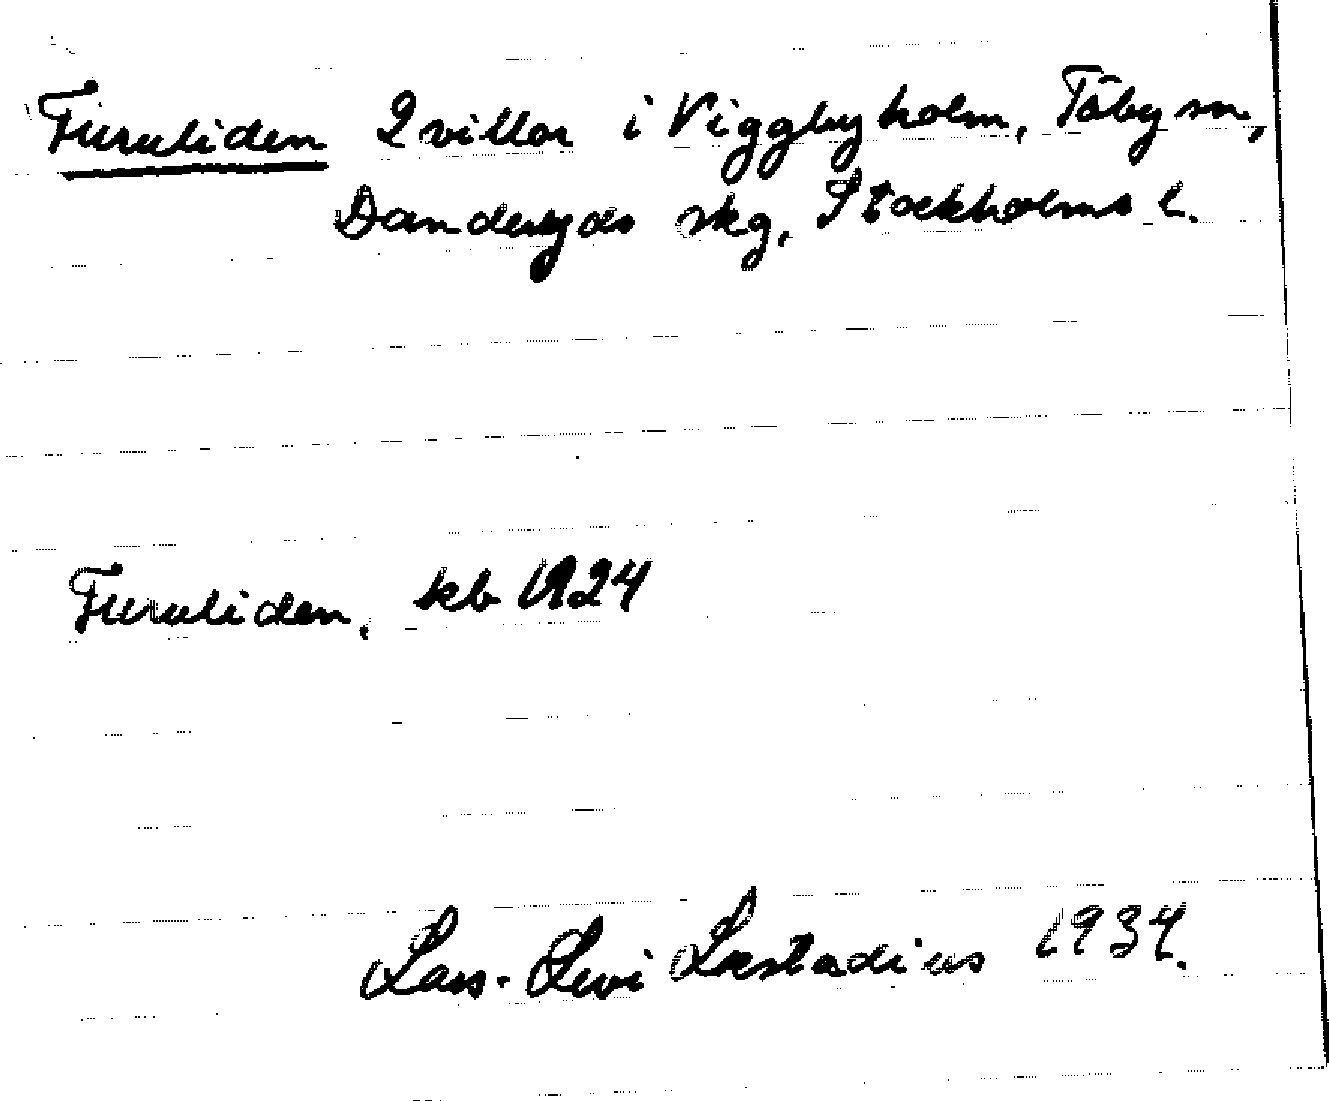 Furuliden 2 villor i Viggbyholm, Täby sn,
Danderyds skg, Stockholms l.
Furuliden, kb 1924
Lars-Levi Læstadius 1934.